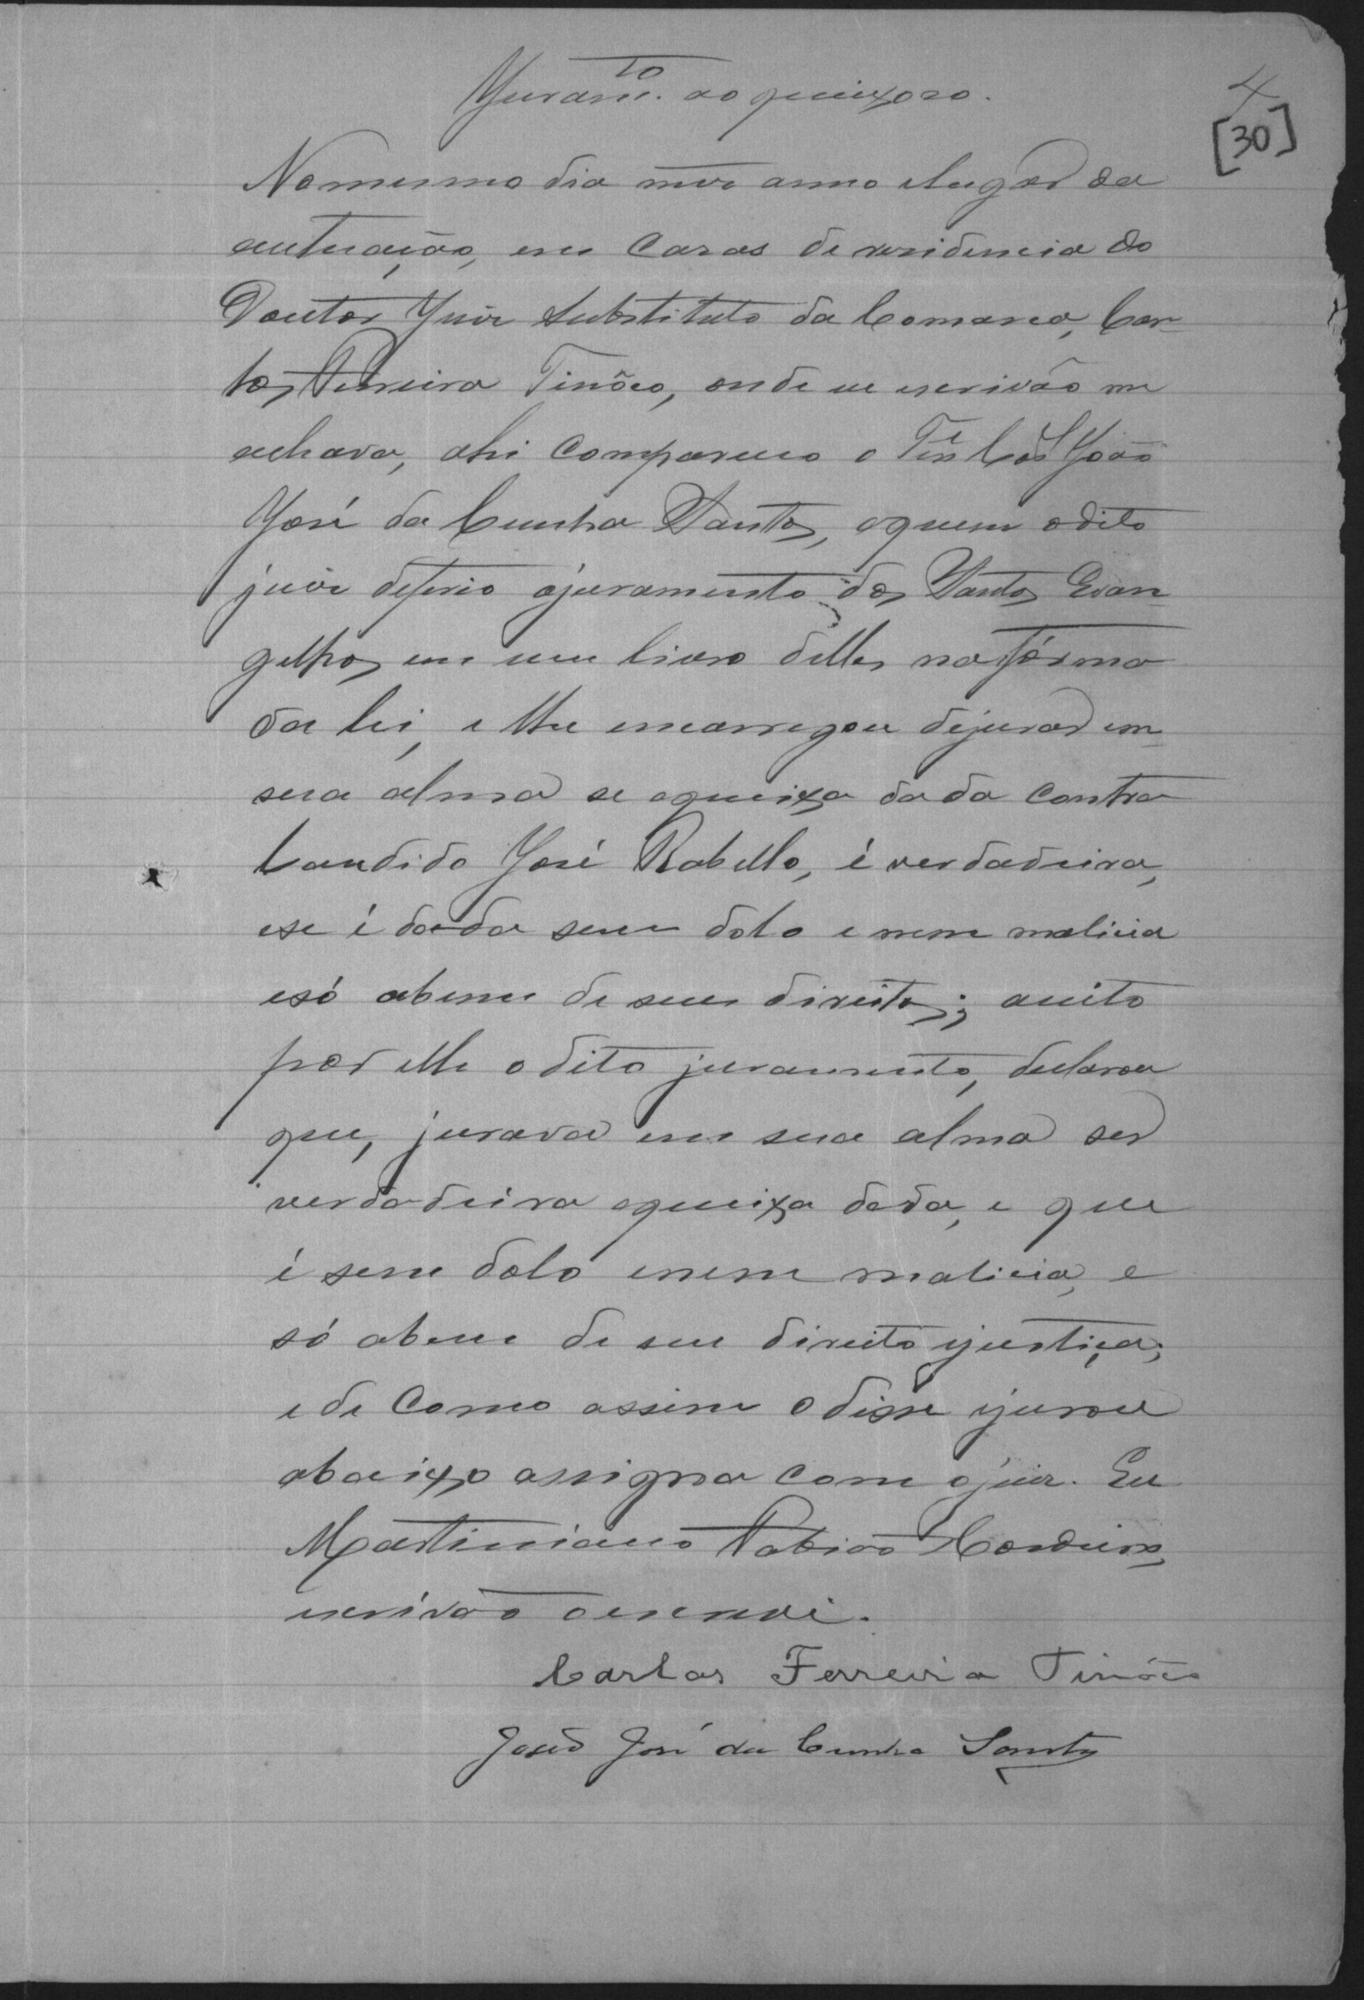 Juram.to ao queixoso.
4
[30]
No mesmo dia mez anno e lugar da
autuação, em casas de residencia do
Doutor Juiz Substituto da Comarca, Car-
los Ferreira Tinôco, onde eu escrivão me
achava, ahi compareceo o Te Cel João
José da Cunha Santos, a quem o dito
juiz deferio o juramento dos Santos Evan-
gelhos em um livro delles na fórma
da lei, e lhe encarregou de jurar em
sua alma se a queixa dada contra
Candido José Rabello, é verdadeira,
e se é dada sem dolo e nem malicia
e só a bem de seus direitos; aceito
por elle o dito juramento, declarou
que, jurava em sua alma ser
verdadeira a queixa dada, e que
é sem dolo e nem malicia, e
só a bem de seu direito e justiça;
e de como assim o disse e jurou
abaixo assigna com o juiz. Eu
Martiniano Cordeiro,
escrivão o escrevi.
Carlos Ferreira Tinôco
João José da Cunha Santos